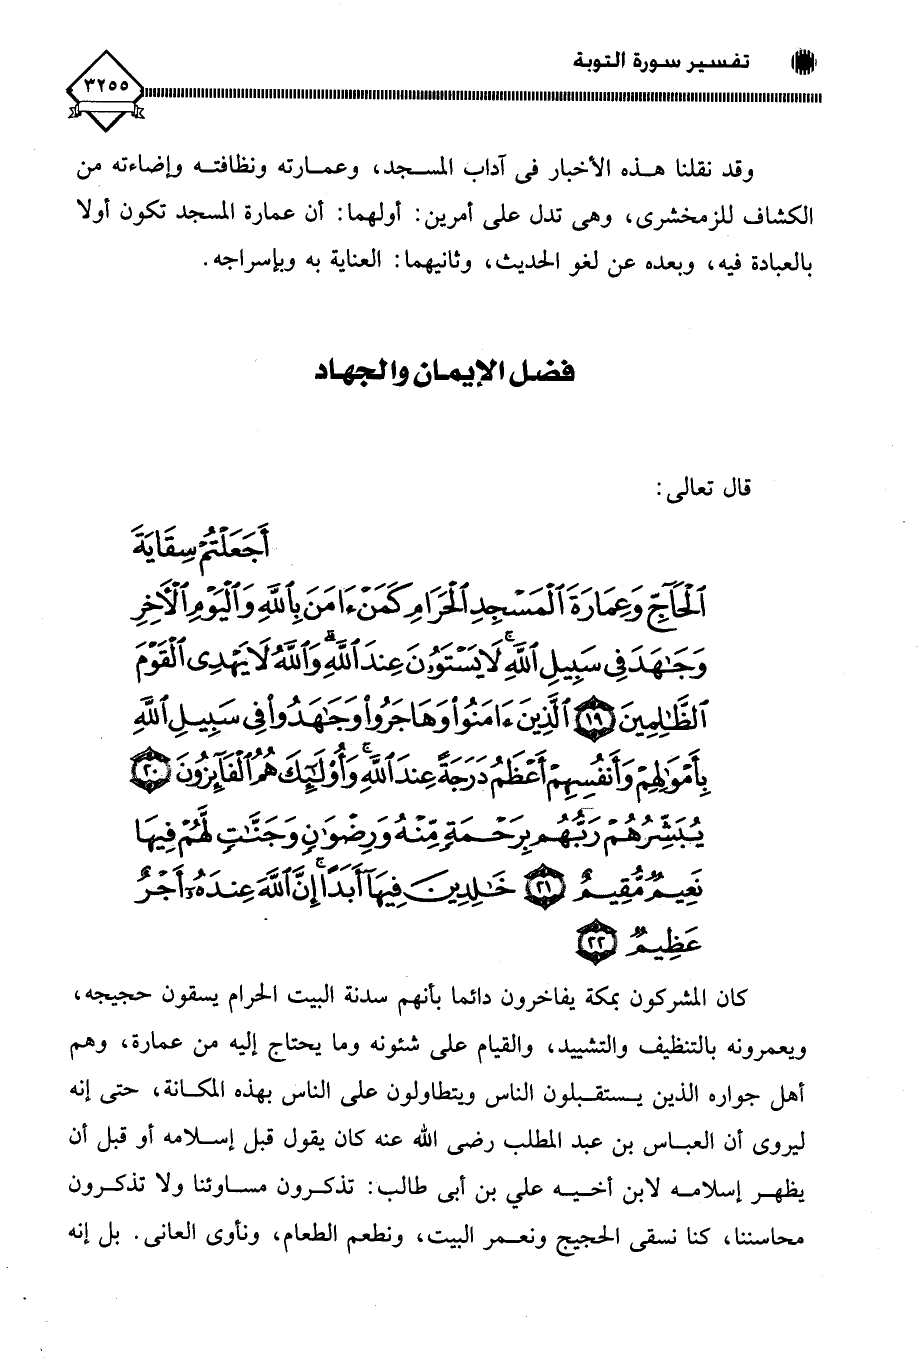 تفسير سورة التوبة
٣٢٥٥
وقد نقلنا هذه الأخبار فى آداب المسجد، وعمارته ونظافته وإضاءته من
الكشاف للزمخشرى، وهى تدل على أمرين: أولهما: أن عمارة المسجد تكون أولا
بالعبادة فيه، وبعده عن لغو الحديث، وثانيهما: العناية به وبإسراجه.
فضل الإيمان والجهاد
قال تعالى:
أَجَعَلْتُمْ سِقَايَةَ
ٱلْحَآجِّ وَعِمَارَةَ ٱلْمَسْجِدِ ٱلْحَرَامِ كَمَنْ ءَامَنَ بِٱللَّهِ وَٱلْيَوْمِ ٱلْأَخِرِ
وَجَٰهَدَ فِى سَبِيلِ ٱللَّهِ ۚ لَا يَسْتَوُۥنَ عِندَ ٱللَّهِ ۗ وَٱللَّهُ لَا يَهْدِى ٱلْقَوْمَ
ٱلظَّٰلِمِينَ ١٩ ٱلَّذِينَ ءَامَنُوا۟ وَهَاجَرُوا۟ وَجَٰهَدُوا۟ فِى سَبِيلِ ٱللَّهِ
بِأَمْوَٰلِهِمْ وَأَنفُسِهِمْ أَعْظَمُ دَرَجَةً عِندَ ٱللَّهِ ۚ وَأُو۟لَٰٓئِكَ هُمُ ٱلْفَآئِزُونَ ٢٠
يُبَشِّرُهُمْ رَبُّهُم بِرَحْمَةٍ مِّنْهُ وَرِضْوَٰنٍ وَجَنَّٰتٍ لَّهُمْ فِيهَا
نَعِيمٌ مُّقِيمٌ ٢١ خَٰلِدِينَ فِيهَآ أَبَدًا ۚ إِنَّ ٱللَّهَ عِندَهُۥٓ أَجْرٌ
عَظِيمٌ ٢٢
كان المشركون بمكة يفاخرون دائما بأنهم سدنة البيت الحرام يسقون حجيجه،
ويعمرونه بالتنظيف والتشييد، والقيام على شئونه وما يحتاج إليه من عمارة، وهم
أهل جواره الذين يستقبلون الناس ويتطاولون على الناس بهذه المكانة، حتى إنه
ليروى أن العباس بن عبد المطلب رضى الله عنه كان يقول قبل إسلامه أو قبل أن
يظهر إسلامه لابن أخيه علي بن أبى طالب: تذكرون مساوئنا ولا تذكرون
محاسننا، كنا نسقى الحجيج ونعمر البيت، ونطعم الطعام، ونأوى العانى. بل إنه